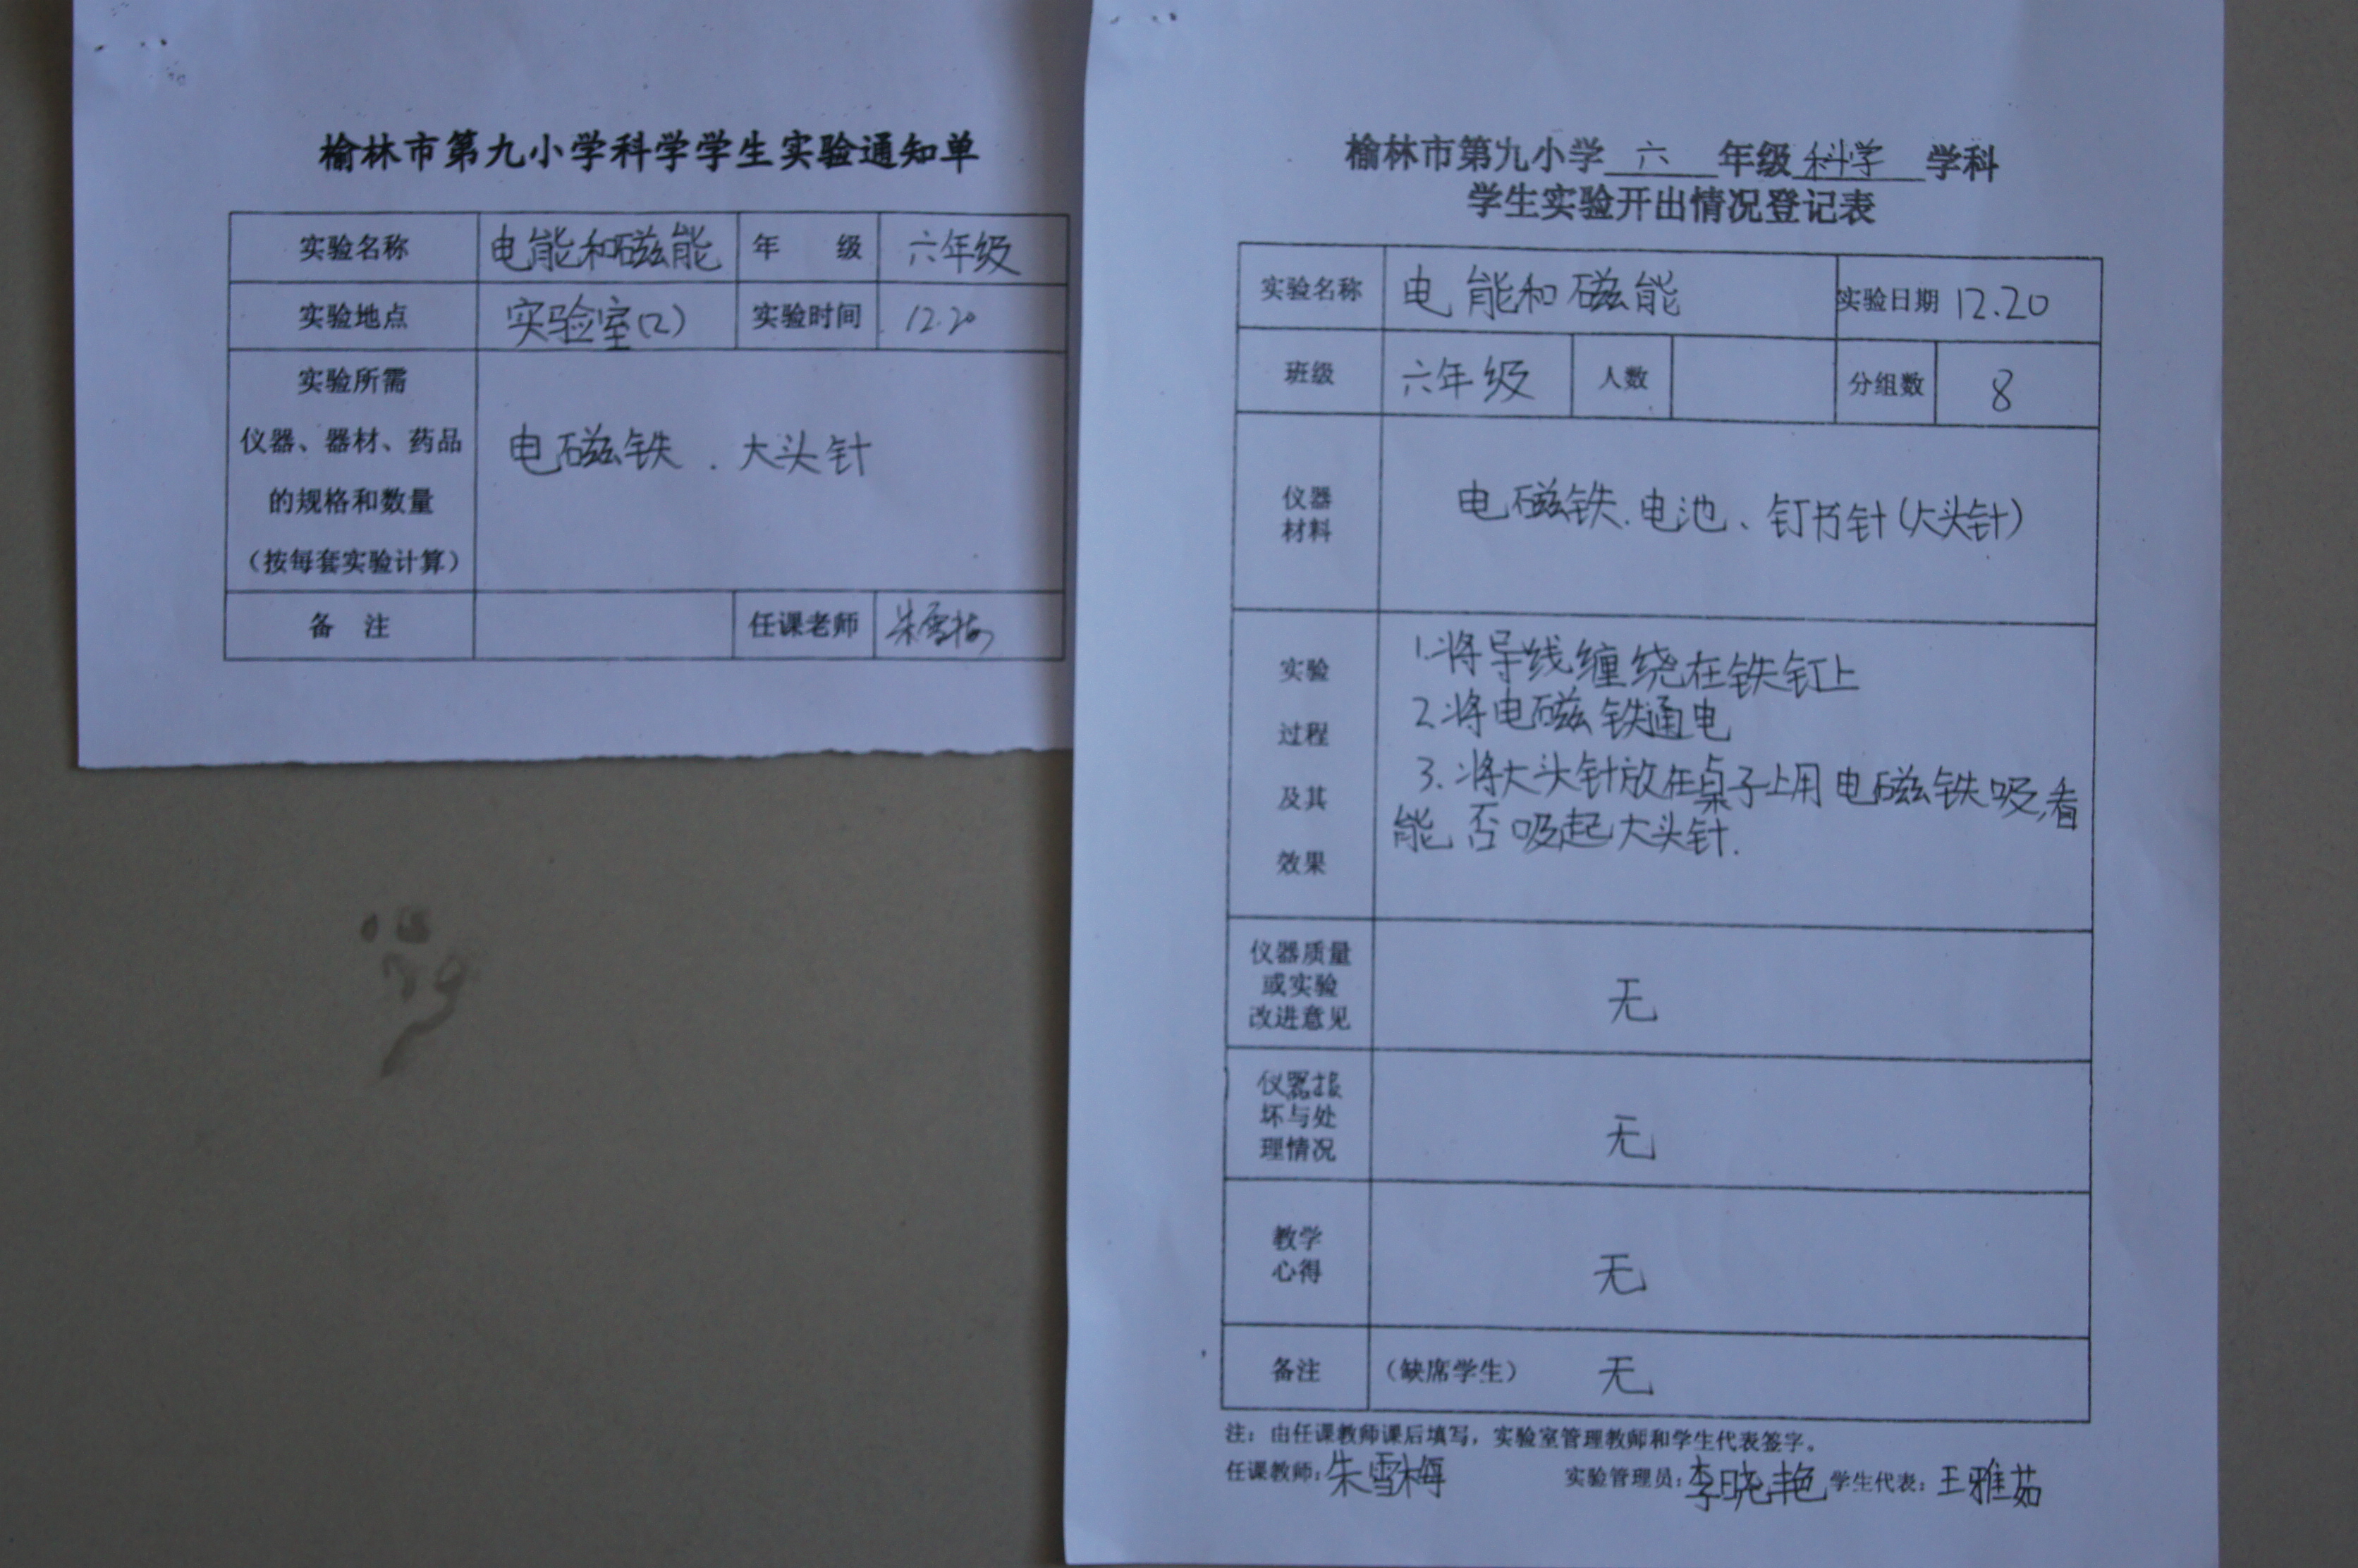 榆林市第九小学科学学生实验通知单
实验名称 电能和磁能 年 级 六年级
实验地点 实验室(2) 实验时间 12.20
实验所需
仪器、器材、药品
的规格和数量
（按每套实验计算）
电磁铁．大头针
备 注 任课老师 朱雪梅
榆林市第九小学 六 年级 科学 学科
学生实验开出情况登记表
实验名称 电能和磁能 实验日期 12.20
班级 六年级 人数 分组数 8
仪器
材料
电磁铁、电池、钉书针(大头针)
实验
过程
及其
效果
1.将导线缠绕在铁钉上
2.将电磁铁通电
3.将大头针放在桌子上用电磁铁吸,看
能否吸起大头针.
仪器质量
或实验
改进意见
无
仪器报
坏与处
理情况
无
教学
心得
无
备注 （缺席学生） 无
注：由任课教师课后填写，实验室管理教师和学生代表签字。
任课教师：朱雪梅 实验管理员：李晓艳 学生代表：王雅茹